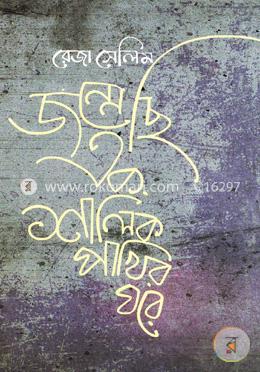 রেজা সেলিম
জন্মেছি
এক
শালিক
পাখির
ঘরে
www.rokomari.com
16297